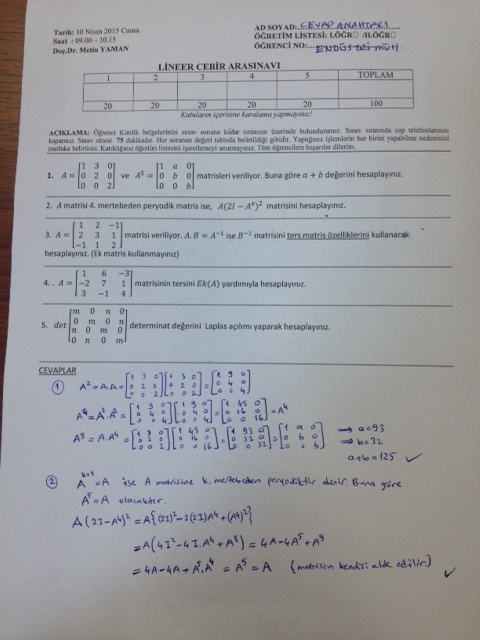 Tarih: 10 Nisan 2015 Cuma
Saat : 09.00 – 10.15
Doç.Dr. Metin YAMAN
AD SOYAD: CEVAP ANAHTARI
ÖĞRETİM LİSTESİ: I.ÖĞR□ /II.ÖĞR□
ÖĞRENCİ NO: ENDÜSTRİ MÜH
LİNEER CEBİR ARASINAVI
1 2 3 4 5 TOPLAM
20 20 20 20 20 100
Kutuların içerisine karalama yapmayınız!
AÇIKLAMA: Öğrenci Kimlik belgelerinizi sınav sonuna kadar sıranızın üzerinde bulundurunuz. Sınav sırasında cep telefonlarınızı
kapatınız. Sınav süresi 75 dakikadır. Her sorunun değeri tabloda belirtildiği gibidir. Yaptığınız işlemlerin her birini yapabilme nedeninizi
mutlaka belirtiniz. Katıldığınız öğretim listesini işaretlemeyi unutmayınız. Tüm öğrencilere başarılar dilerim.
1. A = [1 3 0; 0 2 0; 0 0 2] ve A⁵ = [1 a 0; 0 b 0; 0 0 b] matrisleri veriliyor. Buna göre a + b değerini hesaplayınız.
2. A matrisi 4. mertebeden peryodik matris ise, A(2I − A⁴)² matrisini hesaplayınız.
3. A = [1 2 −1; 2 3 1; −1 1 2] matrisi veriliyor. A.B = A⁻¹ ise B⁻¹ matrisini ters matris özelliklerini kullanarak
hesaplayınız. (Ek matris kullanmayınız)
4. . A = [1 6 −3; −2 7 1; 3 −1 4] matrisinin tersini Ek(A) yardımıyla hesaplayınız.
5. det [m 0 n 0; 0 m 0 n; n 0 m 0; 0 n 0 m] determinat değerini Laplas açılımı yaparak hesaplayınız.
CEVAPLAR
① A² = A.A = [1 3 0; 0 2 0; 0 0 2] [1 3 0; 0 2 0; 0 0 2] = [1 9 0; 0 4 0; 0 0 4]
A⁴ = A².A² = [1 9 0; 0 4 0; 0 0 4] [1 9 0; 0 4 0; 0 0 4] = [1 45 0; 0 16 0; 0 0 16] = A⁴
A⁵ = A.A⁴ = [1 3 0; 0 2 0; 0 0 2] [1 45 0; 0 16 0; 0 0 16] = [1 93 0; 0 32 0; 0 0 32] = [1 a 0; 0 b 0; 0 0 b] ⟹ a=93
⟹ b=32
a+b=125 ✓
② A^{k+1} = A ise A matrisine k. mertebeden peryodiktir denir. Buna göre
A⁵ = A olacaktır.
A(2I−A⁴)² = A{(2I)²−2(2I)A⁴+(A⁴)²}
= A(4I²−4I.A⁴+A⁸) = 4A−4A⁵+A⁹
= 4A−4A+A⁵.A⁴ = A⁵ = A (matrisin kendisi elde edilir.) ✓